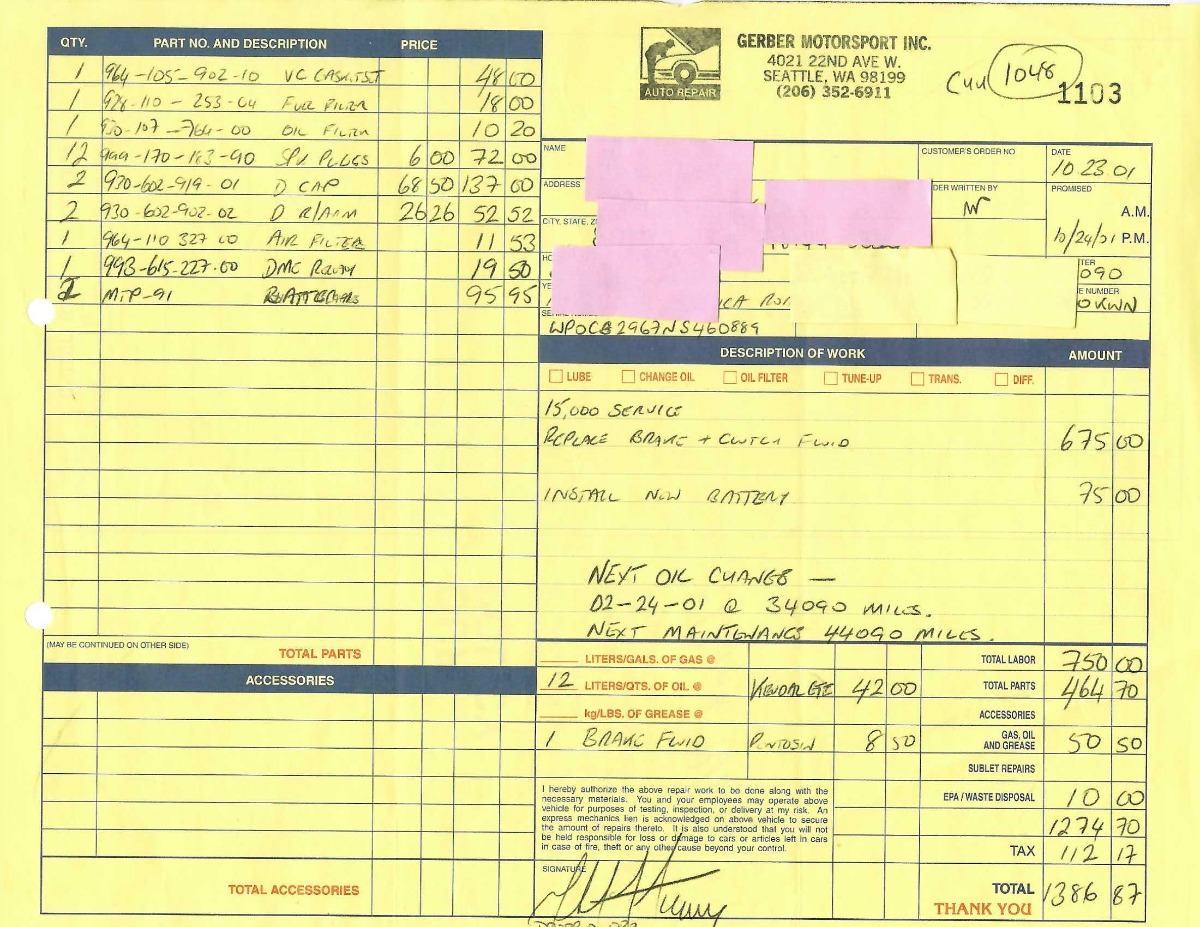 GERBER MOTORSPORT INC.
4021 22ND AVE W.
SEATTLE, WA 98199
(206) 352-6911
AUTO REPAIR
1048
1103
QTY. PART NO. AND DESCRIPTION PRICE
1 964-105-902-10 VC GASK.TST 48 00
1 928-110-253-04 FUEL FILTER 18 00
1 930-107-764-00 OIL FILTER 10 20
12 999-170-163-90 SPK PLUGS 6 00 72 00
2 930-602-919-01 D CAP 68 50 137 00
2 930-602-902-02 D R/ARM 26 26 52 52
1 964-110 327 00 AIR FILTER 11 53
1 993-615-227-00 DME RELAY 19 50
MTP-91 95 95
(MAY BE CONTINUED ON OTHER SIDE)
TOTAL PARTS
ACCESSORIES
TOTAL ACCESSORIES
NAME
CUSTOMER'S ORDER NO
DATE
10 23 01
ADDRESS
DER WRITTEN BY
PROMISED
A.M.
10/24/01 P.M.
CITY, STATE, Z
TER
090
E NUMBER
OKWN
WP0CB2967NS460889
DESCRIPTION OF WORK AMOUNT
LUBE CHANGE OIL OIL FILTER TUNE-UP TRANS. DIFF.
15,000 SERVICE
REPLACE BRAKE + CLUTCH FLUID 675 00
INSTALL NEW BATTERY 75 00
NEXT OIL CHANGE —
02-24-01 @ 34090 MILES.
NEXT MAINTENANCE 44090 MILES.
LITERS/GALS. OF GAS @ TOTAL LABOR 750 00
12 LITERS/QTS. OF OIL @ 42 00 TOTAL PARTS 464 70
kg/LBS. OF GREASE @ ACCESSORIES
1 BRAKE FLUID PENTOSIN 8 50 GAS, OIL AND GREASE 50 50
SUBLET REPAIRS
EPA / WASTE DISPOSAL 10 00
1274 70
TAX 112 17
TOTAL 1386 87
THANK YOU
I hereby authorize the above repair work to be done along with the
necessary materials. You and your employees may operate above
vehicle for purposes of testing, inspection, or delivery at my risk. An
express mechanics lien is acknowledged on above vehicle to secure
the amount of repairs thereto. It is also understood that you will not
be held responsible for loss or damage to cars or articles left in cars
in case of fire, theft or any other cause beyond your control.
SIGNATURE